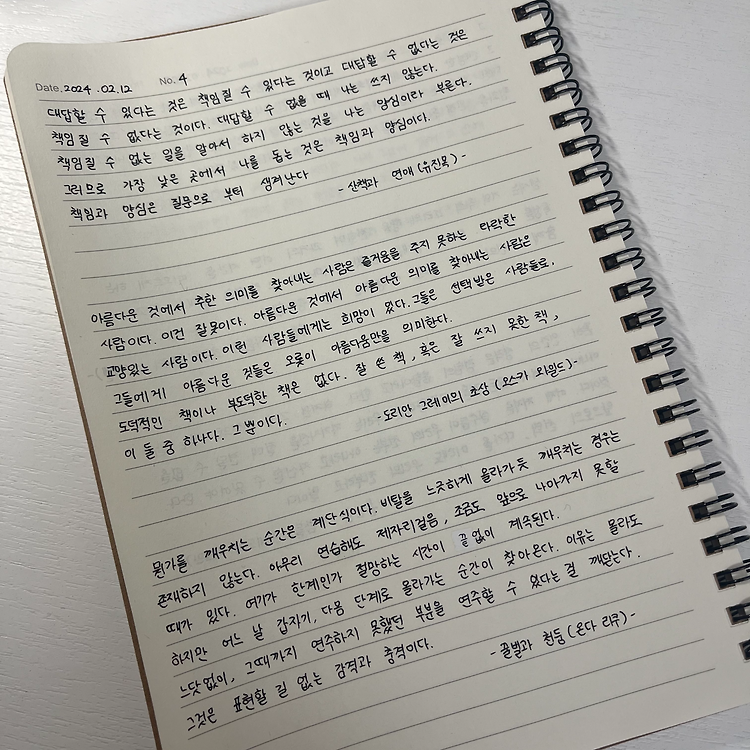 Date. 2024. 02. 12 No. 4
대답할 수 있다는 것은 책임질 수 있다는 것이고 대답할 수 없다는 것은
책임질 수 없다는 것이다. 대답할 수 없을 때 나는 쓰지 않는다.
책임질 수 없는 일을 알아서 하지 않는 것을 나는 양심이라 부른다.
그러므로 가장 낮은 곳에서 나를 돕는 것은 책임과 양심이다.
책임과 양심은 질문으로 부터 생겨난다
- 산책과 연애 (유진목) -
아름다운 것에서 추한 의미를 찾아내는 사람은 즐거움을 주지 못하는 타락한
사람이다. 이건 잘못이다. 아름다운 것에서 아름다운 의미를 찾아내는 사람은
교양있는 사람이다. 이런 사람들에게는 희망이 있다. 그들은 선택받은 사람들로,
그들에게 아름다운 것들은 오롯이 아름다움만을 의미한다.
도덕적인 책이나 부도덕한 책은 없다. 잘 쓴 책, 혹은 잘 쓰지 못한 책,
이 둘 중 하나다. 그 뿐이다.
- 도리안 그레이의 초상 (오스카 와일드) -
뭔가를 깨우치는 순간은 계단식이다. 비탈을 느긋하게 올라가듯 깨우치는 경우는
존재하지 않는다. 아무리 연습해도 제자리걸음, 조금도 앞으로 나아가지 못할
때가 있다. 여기가 한계인가 절망하는 시간이 끝없이 계속된다.
하지만 어느 날 갑자기, 다음 단계로 올라가는 순간이 찾아온다. 이유는 몰라도
느닷없이, 그때까지 연주하지 못했던 부분을 연주할 수 있다는 걸 깨닫는다.
그것은 표현할 길 없는 감격과 충격이다.
- 꿀벌과 천둥 (온다 리쿠) -